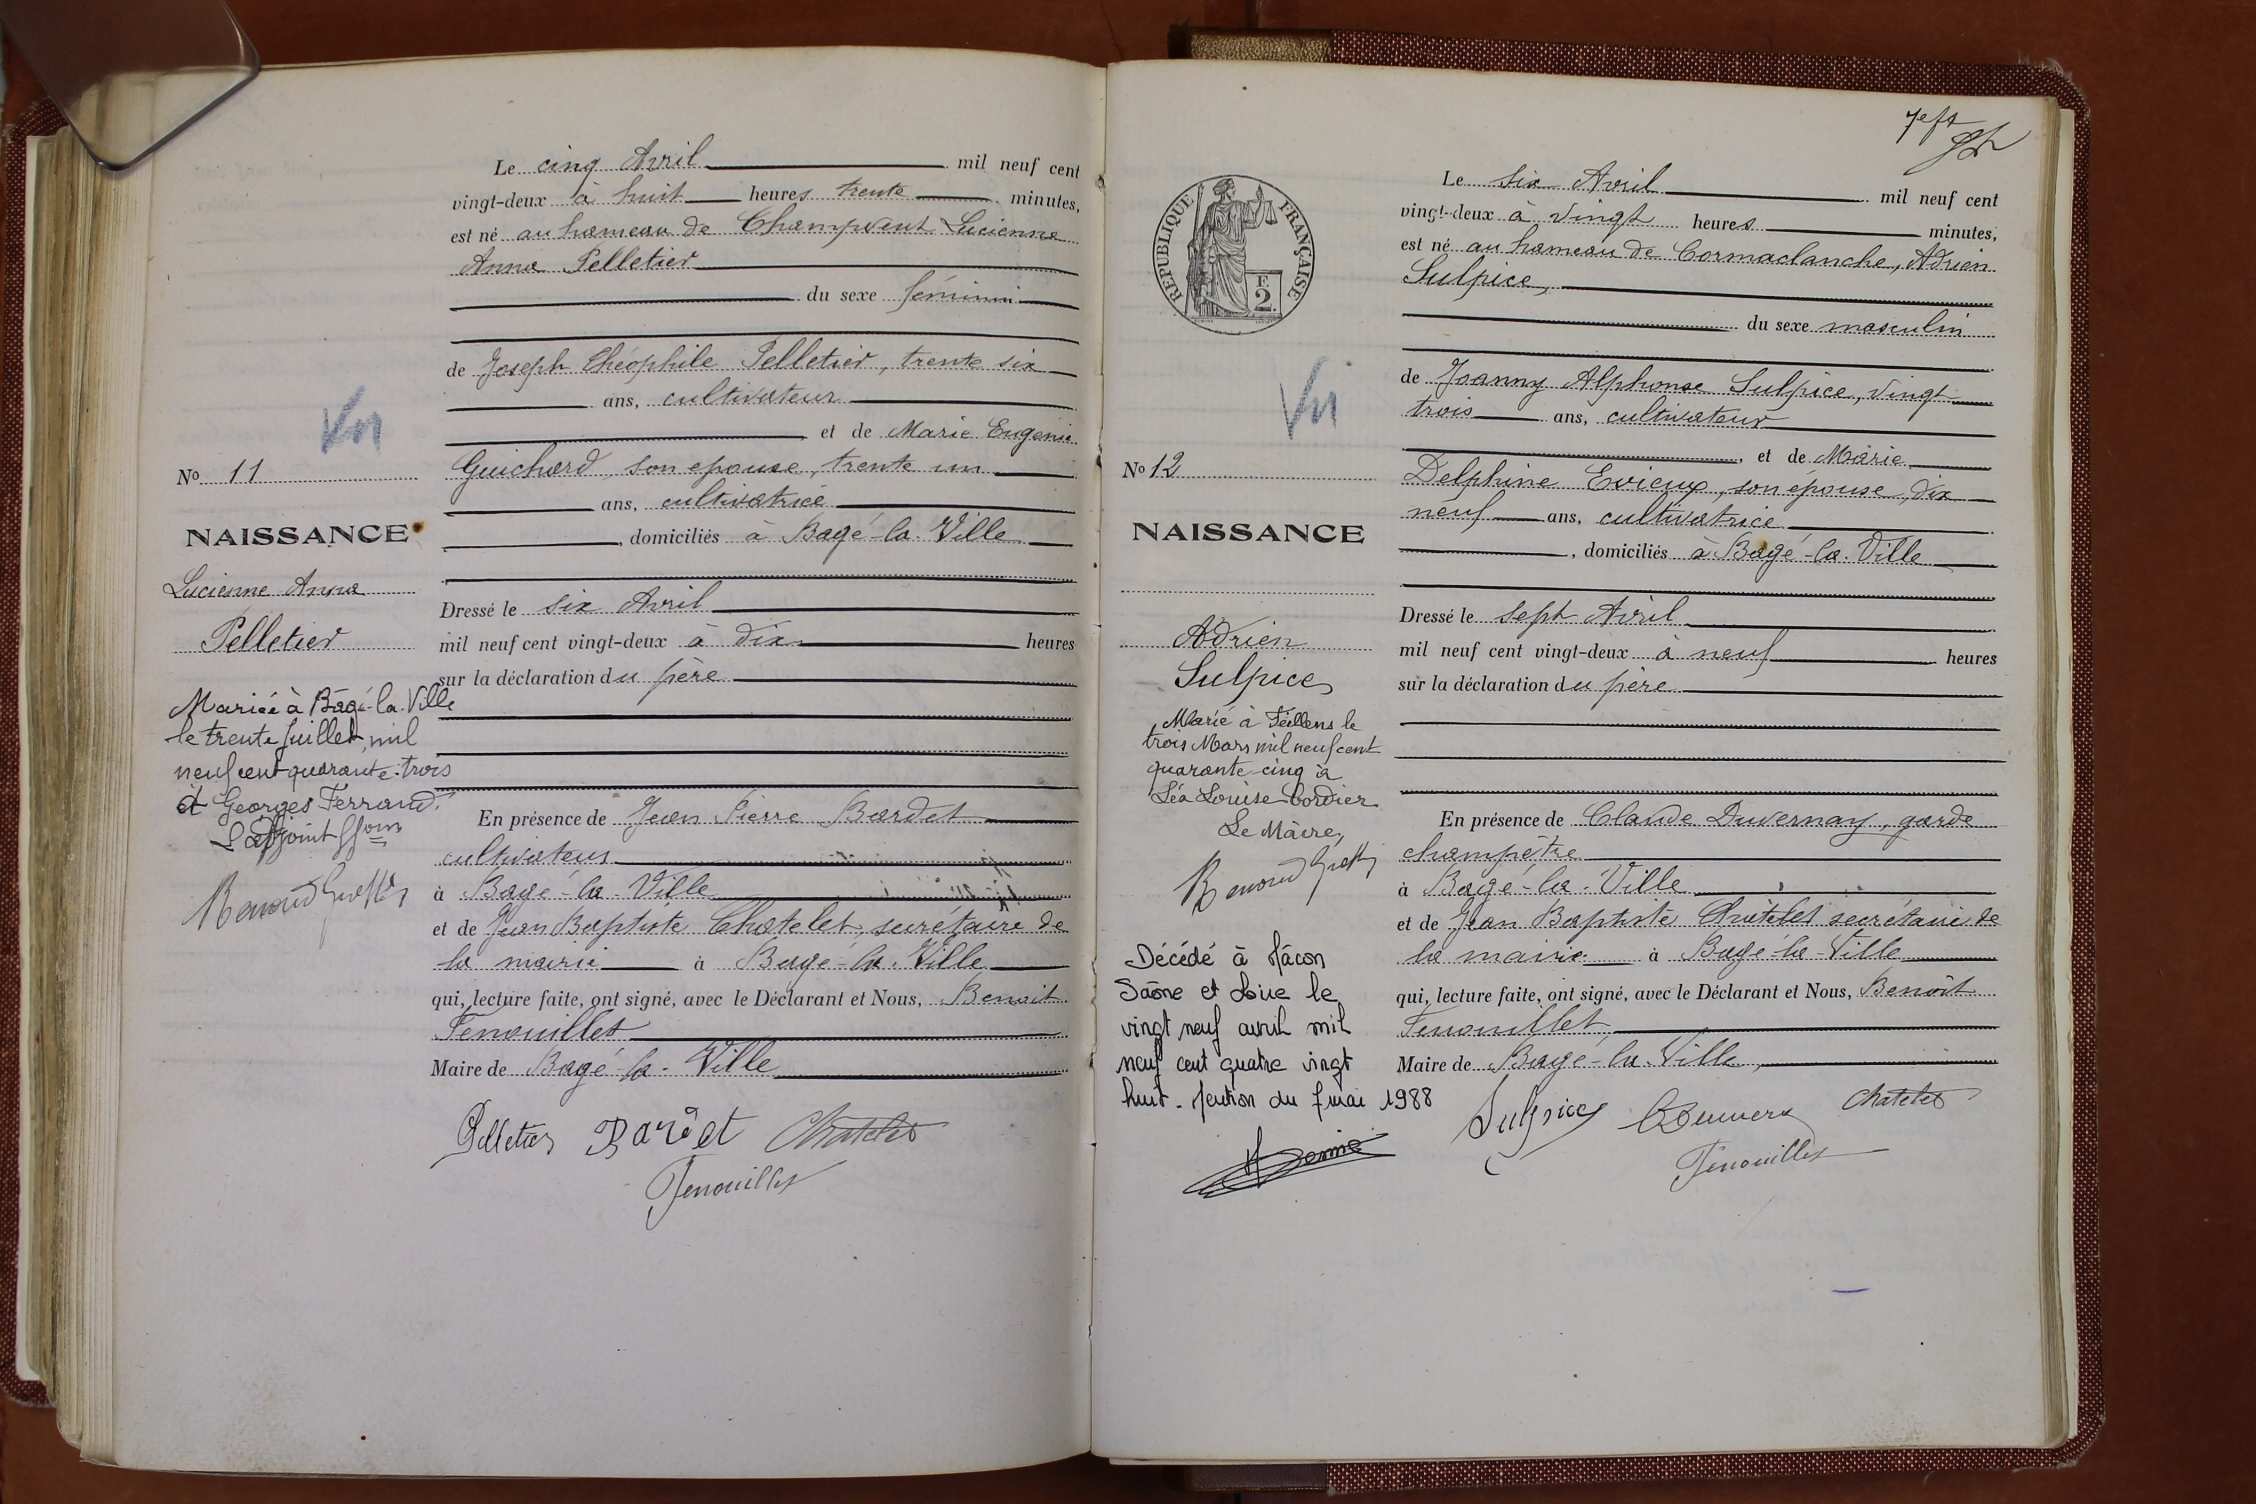 Le cinq Avril mil neuf cent
vingt-deux à huit heures trente minutes,
est né au hameau de Champvent Lucienne
Anna Pelletier
du sexe féminin
de Joseph Théophile Pelletier, trente six
ans, cultivateur
et de Marie Eugenie
Guichard, son epouse, trente un
ans, cultivatrice
domiciliés à Bagé-la-Ville
Dressé le six Avril
mil neuf cent vingt-deux à dix heures
sur la déclaration du père
En présence de Jean Pierre Bardet
cultivateur
à Bagé-la-Ville
et de Jean Baptiste Chatelet, secrétaire de
la mairie à Bagé-la-Ville
qui, lecture faite, ont signé, avec le Déclarant et Nous, Benoit
Fenouillet
Maire de Bagé-la-Ville
Pelletier Bardet Chatelet
Fenouillet
Vu
No 11
NAISSANCE
Lucienne Anna
Pelletier
Mariée à Bagé-la-Ville
le trente Juillet, mil
neuf cent quarante-trois
à Georges Ferrand.
L'adjoint
7eft
RÉPUBLIQUE FRANÇAISE
F.
2
Le six Avril mil neuf cent
vingt-deux à vingt heures minutes,
est né au hameau de Cormaclanche, Adrien
Sulpice,
du sexe masculin
de Joanny Alphonse Sulpice, vingt
trois ans, cultivateur
, et de Marie
Delphine Evieux, son épouse, dix
neuf ans, cultivatrice
, domiciliés à Bagé-la-Ville
Dressé le sept Avril
mil neuf cent vingt-deux à neuf heures
sur la déclaration du père
En présence de Claude Duvernay, garde
champêtre
à Bagé-la-Ville
et de Jean Baptiste Châtelet secrétaire de
la mairie à Bagé-la-Ville
qui, lecture faite, ont signé, avec le Déclarant et Nous, Benoît
Fenouillet
Maire de Bagé-la-Ville,
Sulpice Chatelet
Fenouillet
Vu
No 12
NAISSANCE
Adrien
Sulpice
Marié à Feillens le
trois Mars mil neuf cent
quarante-cinq à
Léa Louise Cordier
Le Maire,
Décédé à Mâcon
Saône et Loire le
vingt neuf avril mil
neuf cent quatre vingt
huit. Mention du 7 mai 1988